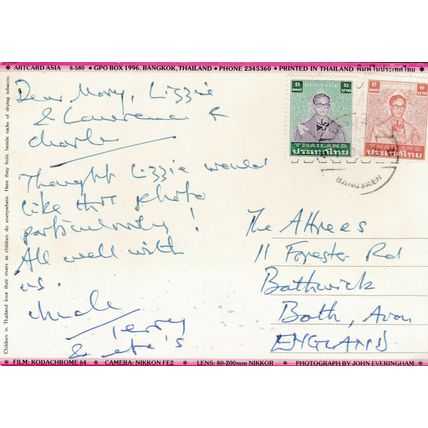 ★ ARTCARD ASIA 8-580 ★ GPO BOX 1996, BANGKOK, THAILAND ★ PHONE 2345360 ★ PRINTED IN THAILAND พิมพ์ในประเทศไทย ★
Children in Thailand love their rivers as children do everywhere. Here they bathe beside racks of drying tobacco.
Dear Mary, Lizzie
& Laurence &
Charle
Thought Lizzie would
like this photo
particularly!
All well with
us.
Terry
&
POSTAGE
THAILAND
ประเทศไทย
THAILAND
ประเทศไทย
BANGSAEN
The Attrees
11 Forester Rd
Bathwick
Bath, Avon
ENGLAND
★ FILM: KODACHROME 64 ★ CAMERA: NIKKON FE2 ★ LENS: 80-200mm NIKKOR ★ PHOTOGRAPH BY JOHN EVERINGHAM ★